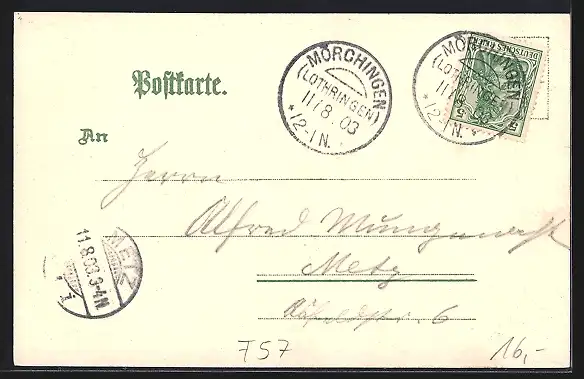 MÖRCHINGEN
(LOTHRINGEN)
11/8 03
*12-1N.*
MÖRCHINGEN
(LOTHRINGEN)
11/8 03
*12-1N.*
DEUTSCHES REICH
5 5
Postkarte.
An
Herrn
Alfred
Metz
6
METZ
11.8.03.3-4N
1
757
16,-